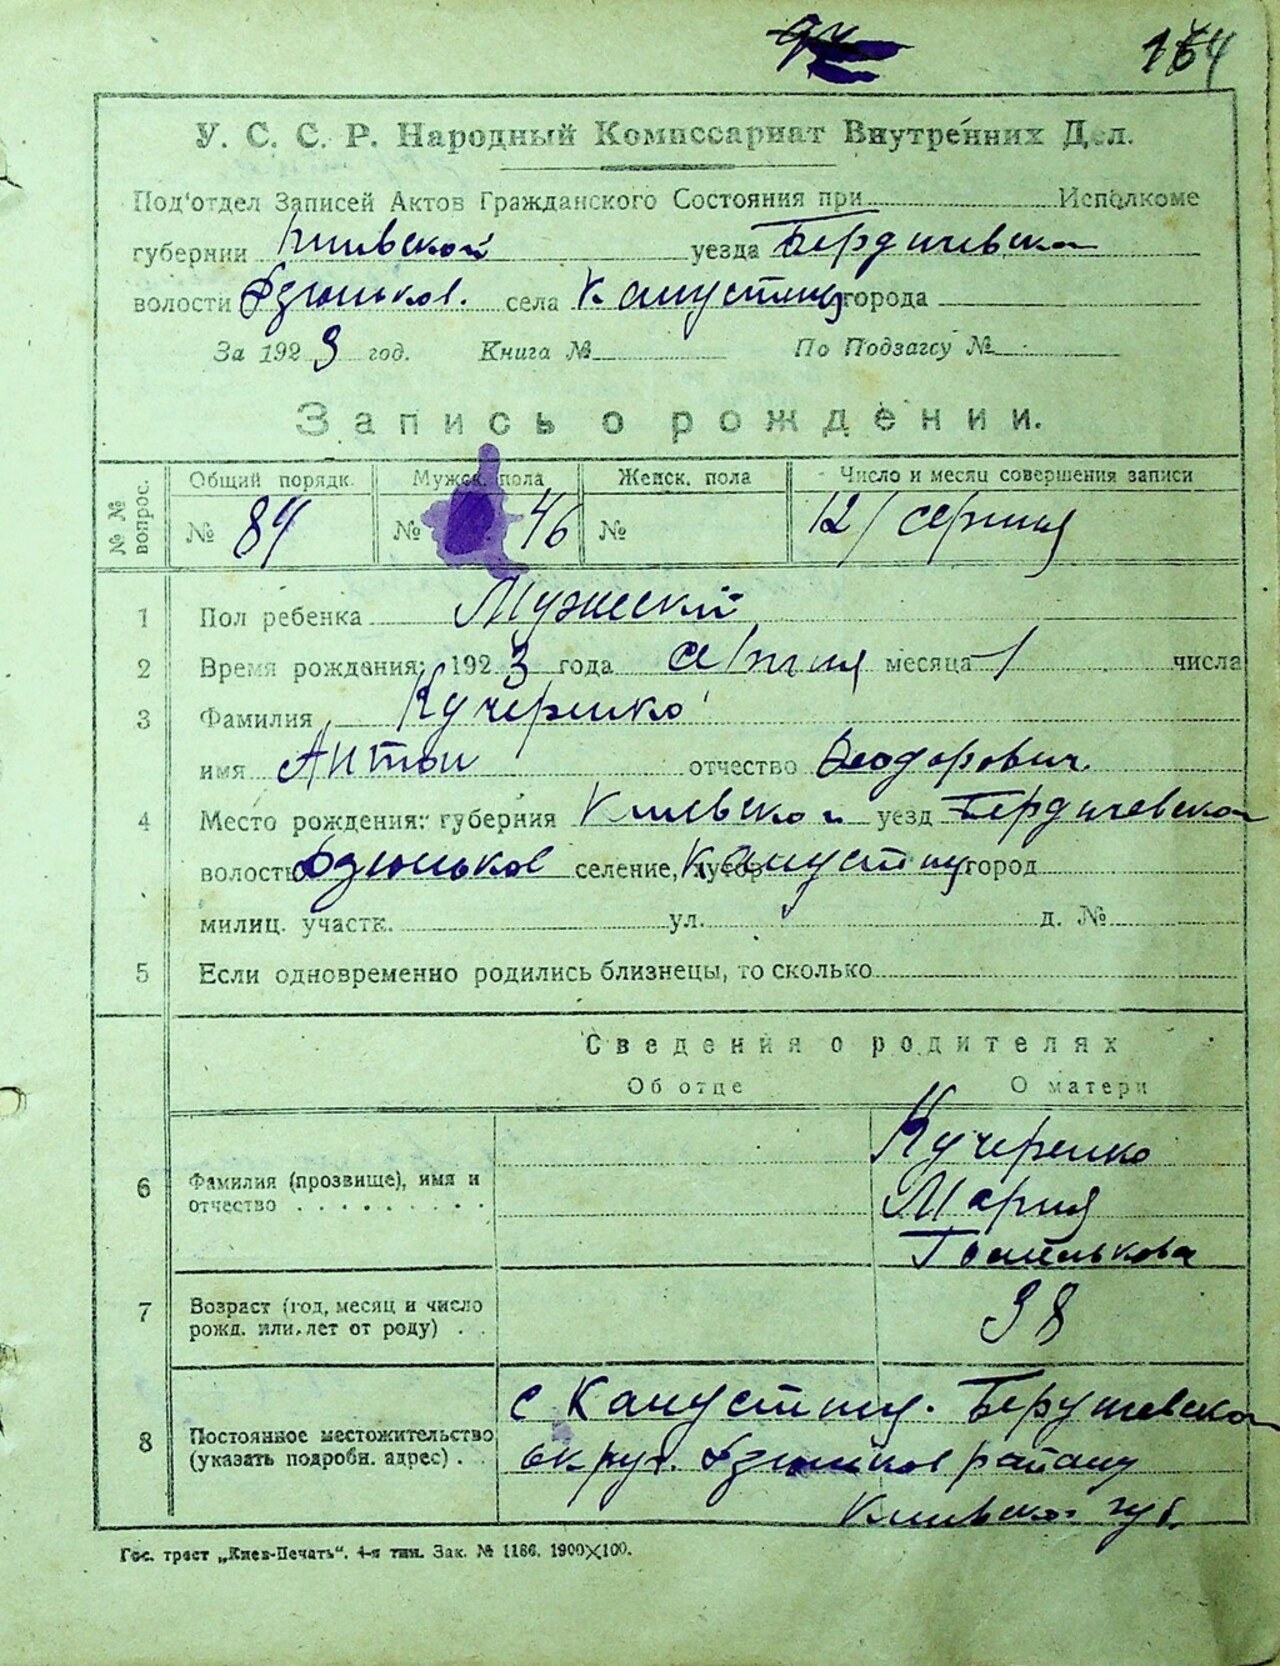 164
У. С. С. Р. Народный Комиссариат Внутренних Дел.
Под'отдел Записей Актов Гражданского Состояния при Исполкоме
губернии Киивской уезда Бердичевской
волости Дзюньков. села Капустинц города
За 1923 год. Книга № По Подзагсу №
Запись о рождении.
№ № вопрос. Общий порядк. Мужск. пола Женск. пола Число и месяц совершения записи
№ 84 № 46 № 12/ серпня
1 Пол ребенка Мужеский
2 Время рождения: 1923 года серпня месяца 1 числа
3 Фамилия Кучеренко
имя Антон отчество Феодорович.
4 Место рождения: губерния Киевской уезд Бердичевской
волость Дзюньков селение, хутор Капустинц город
милиц. участк. ул. д. №
5 Если одновременно родились близнецы, то сколько
Сведения о родителях
Об отце О матери
Кучеренко
6 Фамилия (прозвище), имя и
отчество . . . . . . . . . Мария
7 Возраст (год, месяц и число
рожд. или лет от роду) . . 38
с Капустинц.
8 Постоянное местожительство
(указать подробн. адрес) . . округ. району
губ.
Гос. трест „Киев-Печать". 4-я тип. Зак. № 1186. 1900×100.